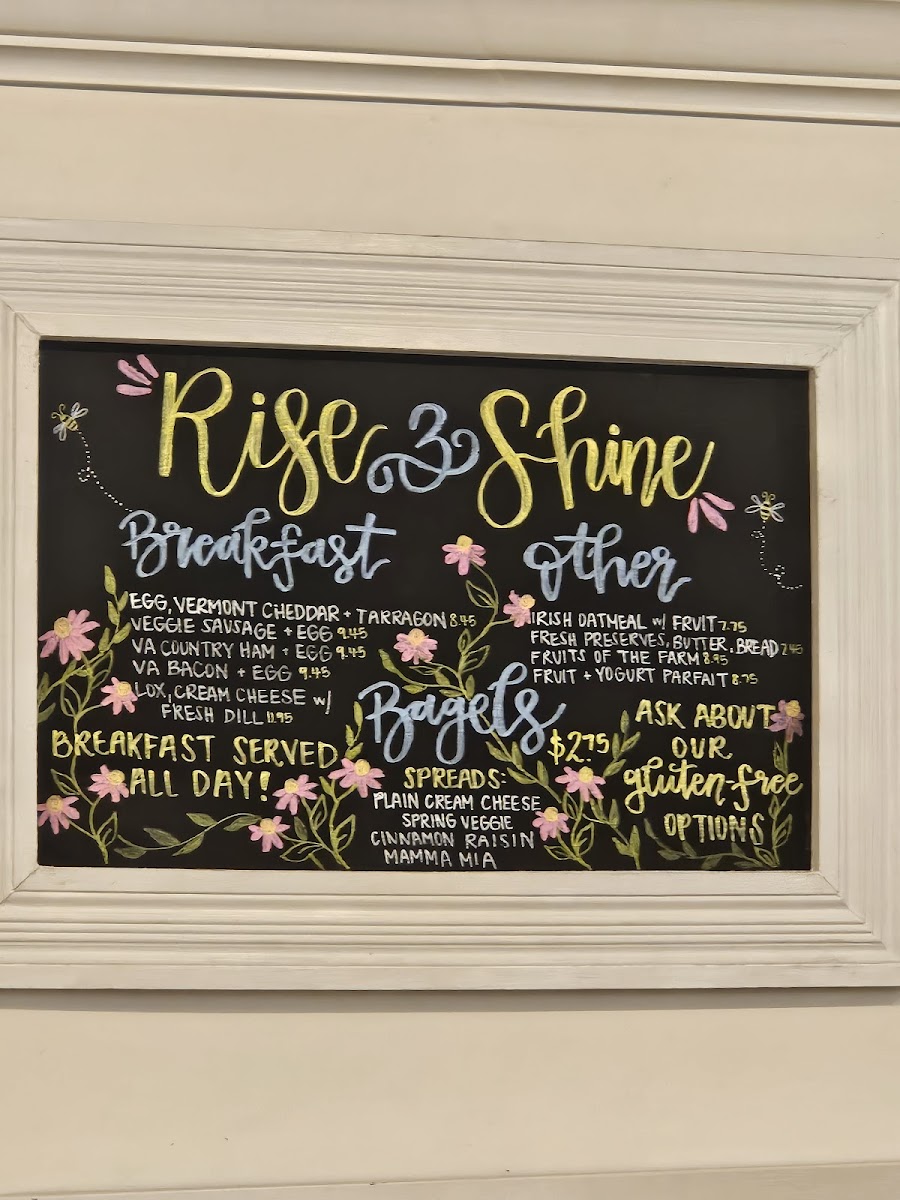 Rise & Shine
Breakfast
EGG, VERMONT CHEDDAR + TARRAGON 8.45
VEGGIE SAUSAGE + EGG 9.45
VA COUNTRY HAM + EGG 9.45
VA BACON + EGG 9.45
LOX, CREAM CHEESE W/
FRESH DILL 11.95
BREAKFAST SERVED
ALL DAY!
Other
IRISH OATMEAL W/ FRUIT 7.75
FRESH PRESERVES, BUTTER, BREAD 7.45
FRUITS OF THE FARM 8.95
FRUIT + YOGURT PARFAIT 8.75
Bagels
$2.75
SPREADS:
PLAIN CREAM CHEESE
SPRING VEGGIE
CINNAMON RAISIN
MAMMA MIA
ASK ABOUT
OUR
gluten-free
OPTIONS